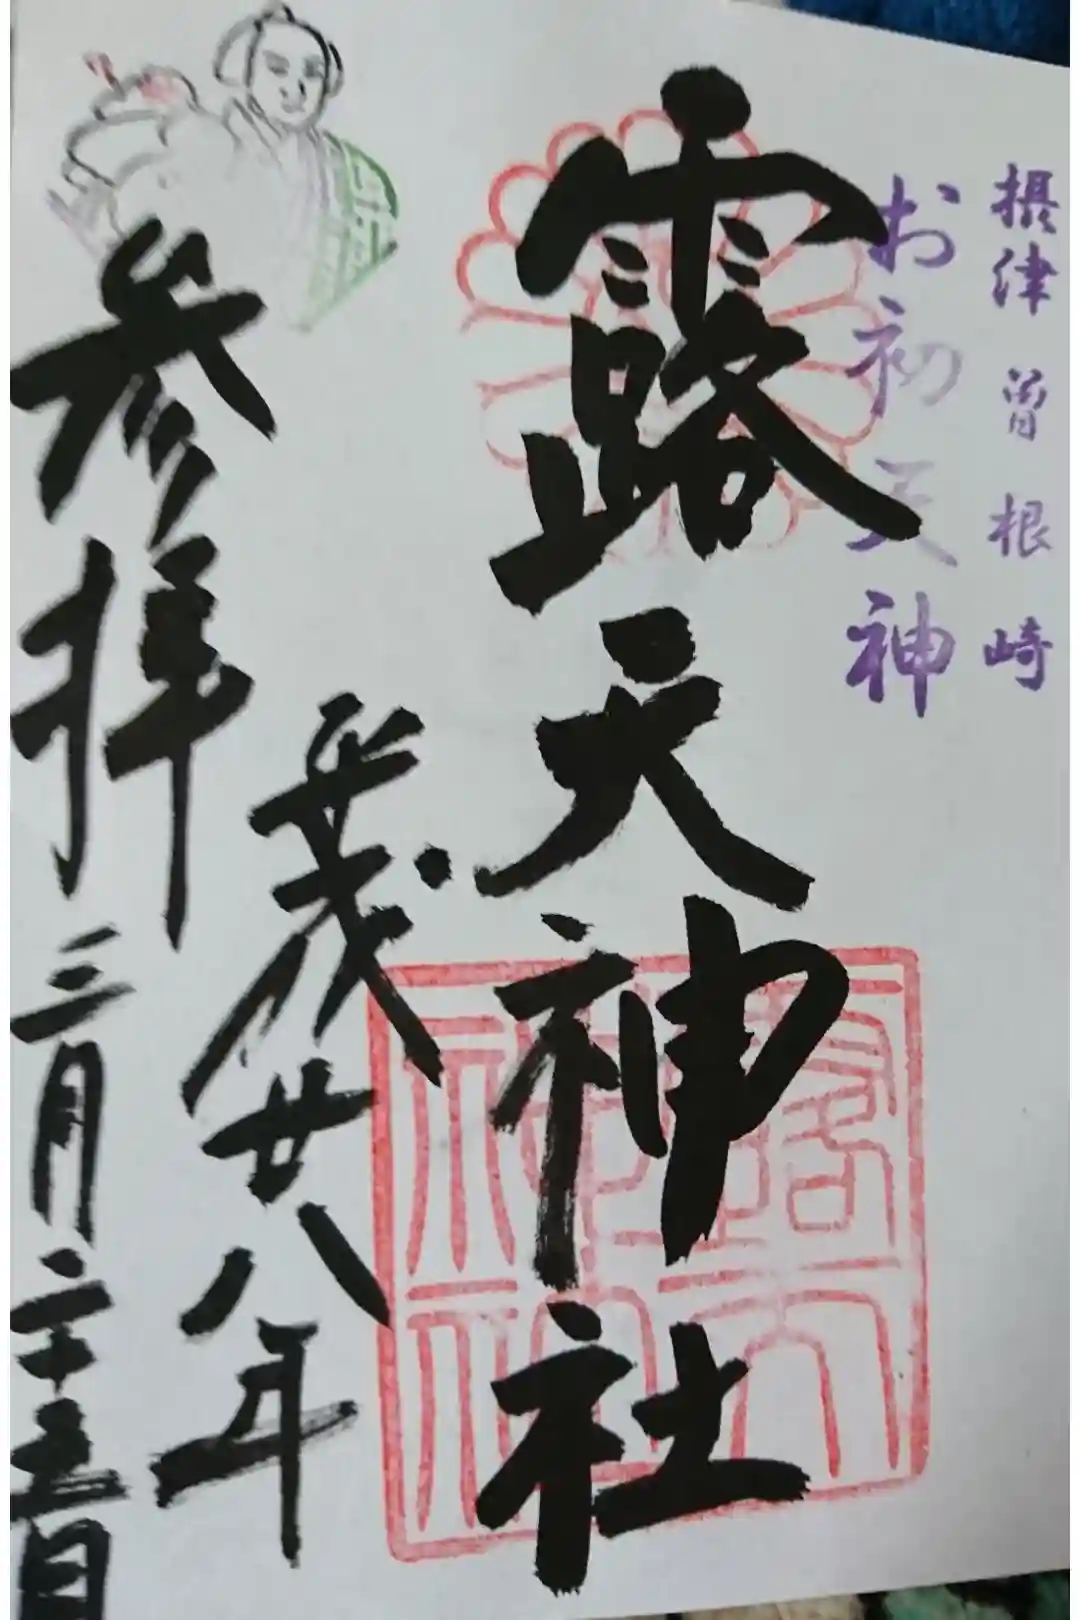 摂津 曽根崎
お初天神
露天神社
平成廿八年
参拝
三月二十五日